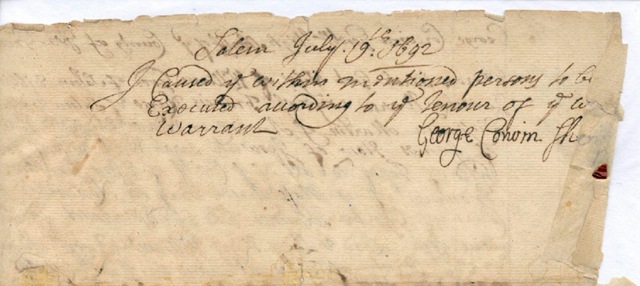 Salem July 19th 1692
I Caused ye within mentioned persons to be
Executed according to ye tenour of ye w
Warrant
George Corwin Sh